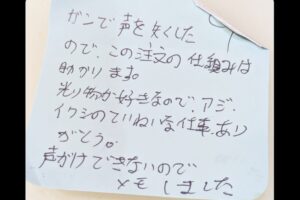 ガンで声を失くした
ので、この注文の仕組みは
助かります。
光り物が好きなので、アジ、
イワシのていねいな仕事、あり
がとう。
声がけできないので
メモしました